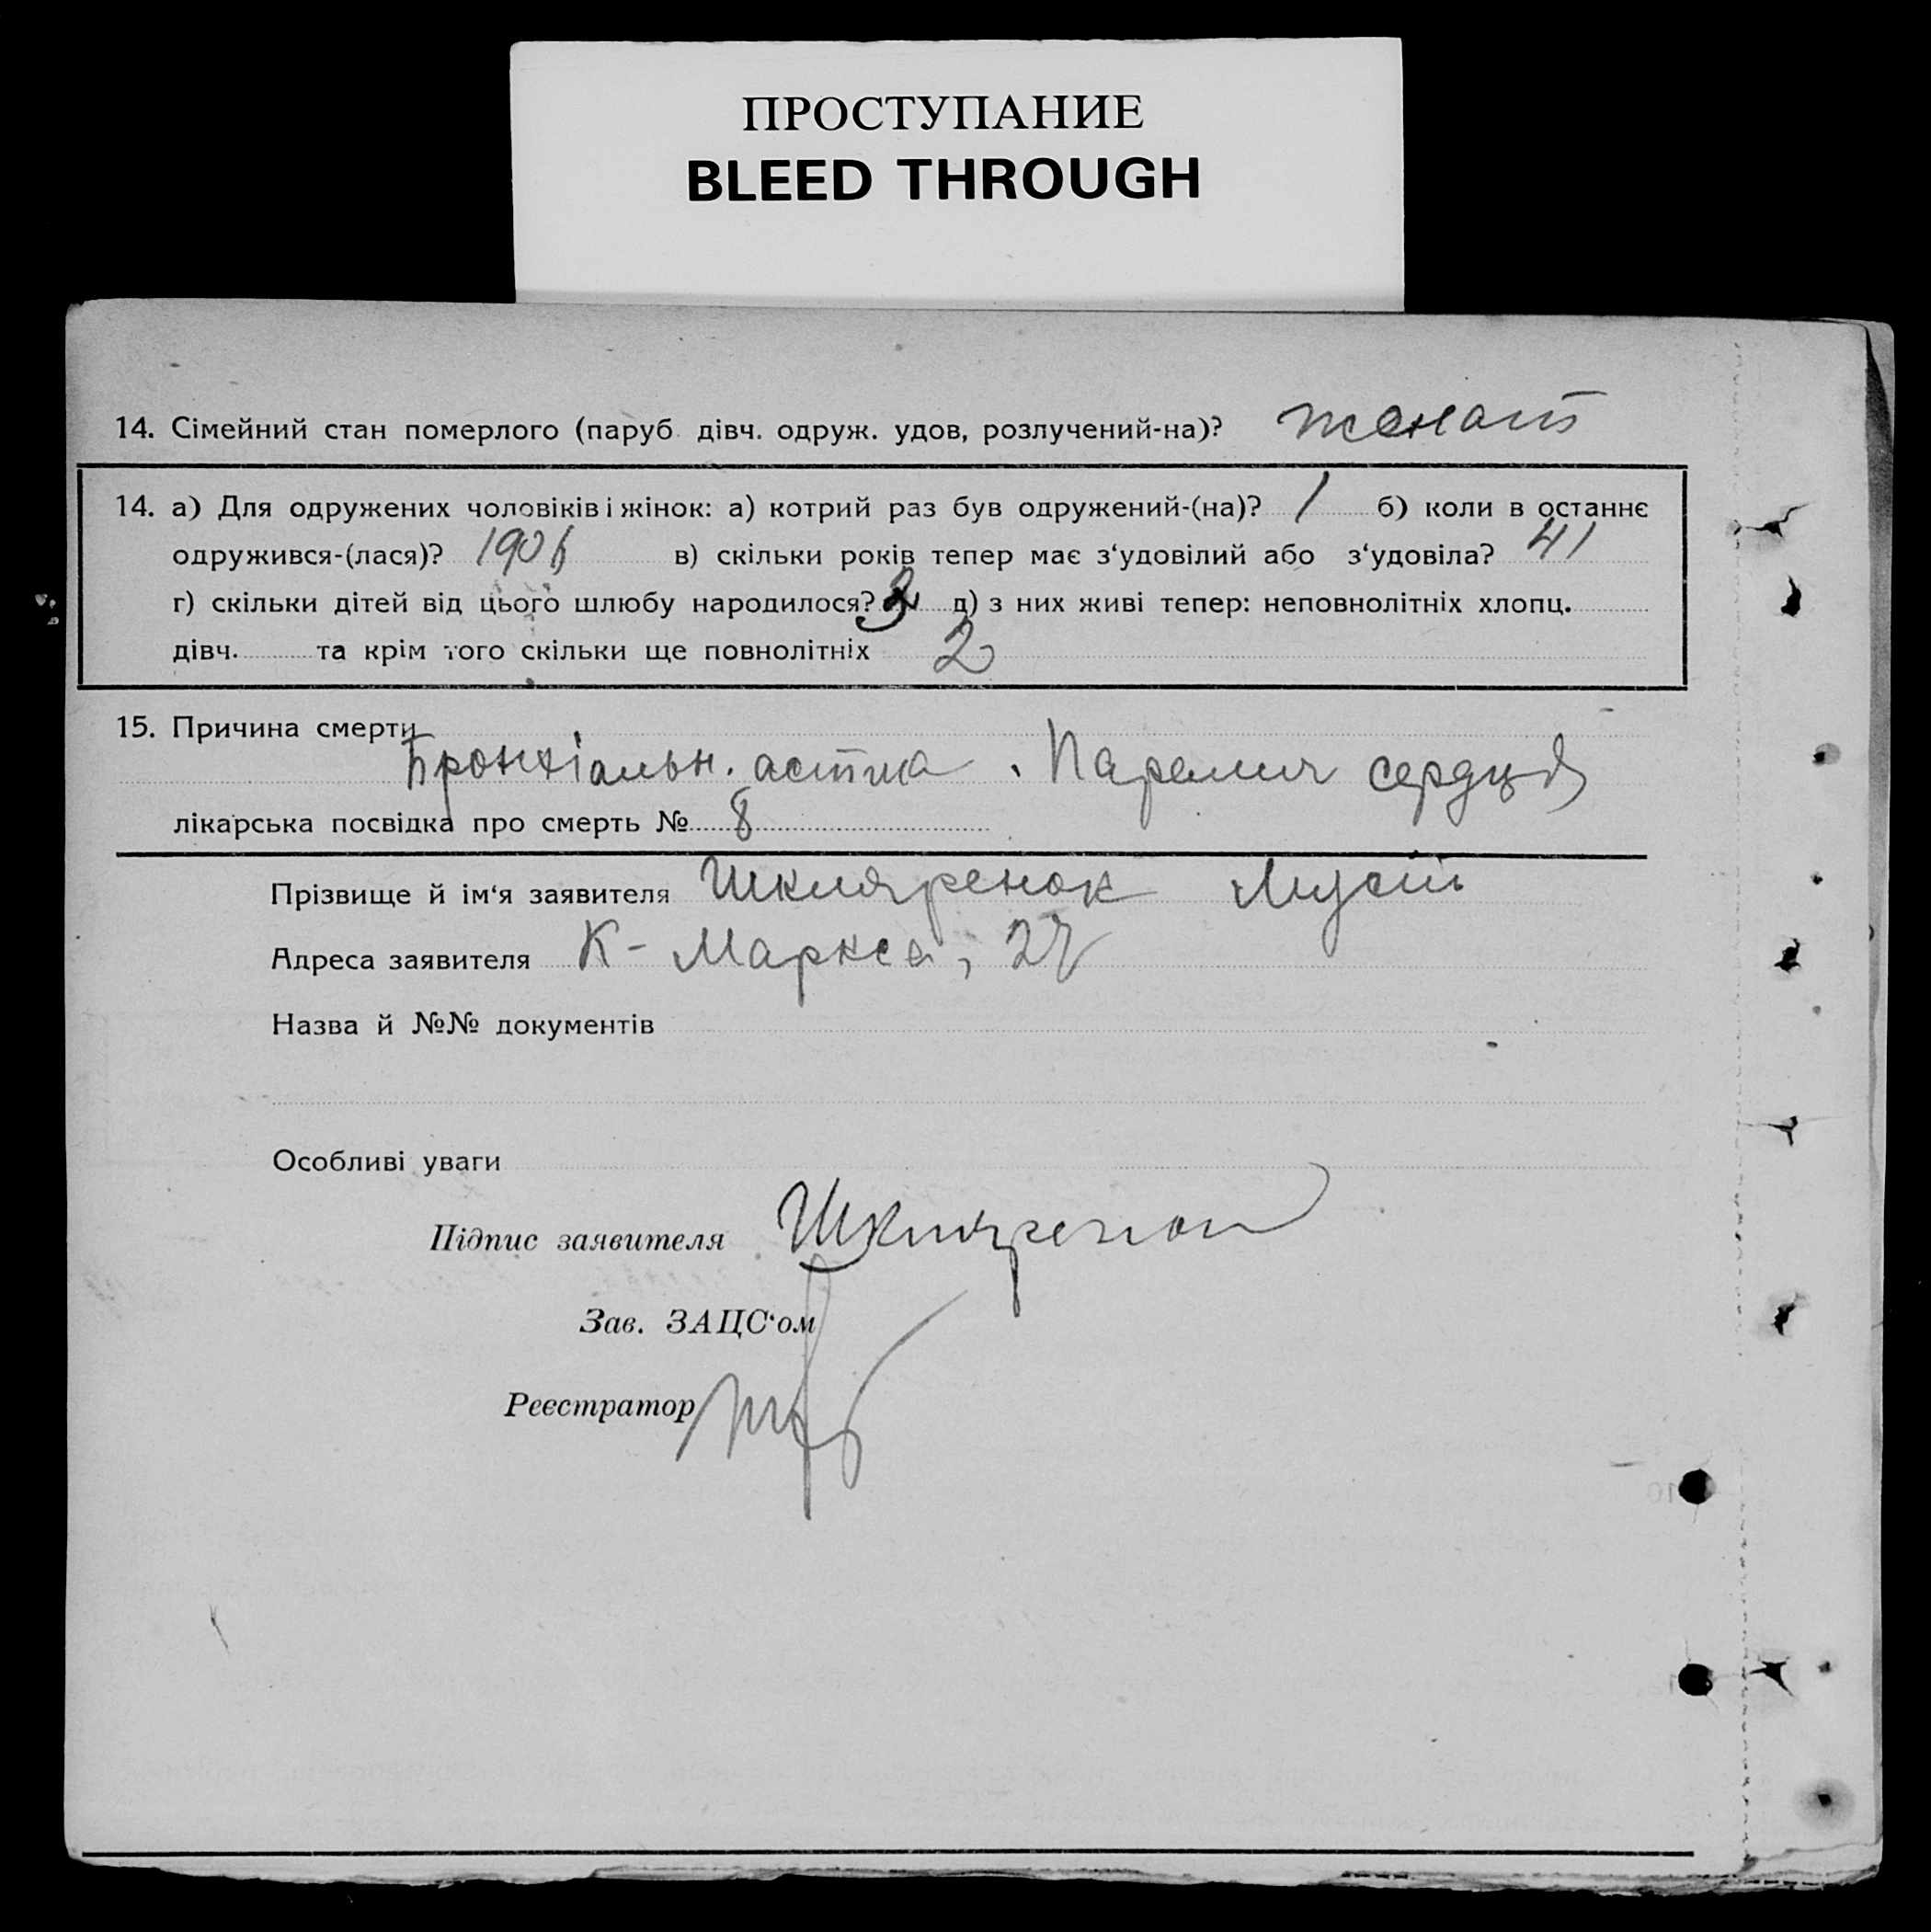 ПРОСТУПАНИЕ
BLEED THROUGH
14. Сімейний стан померлого (паруб. дівч. одруж. удов, розлучений-на)? женат
14. а) Для одружених чоловіків і жінок: а) котрий раз був одружений-(на)? 1 б) коли в останнє
одружився-(лася)? 1906 в) скільки років тепер має з‘удовілий або з‘удовіла? 41
г) скільки дітей від цього шлюбу народилося? 3 д) з них живі тепер: неповнолітніх хлопц.
дівч. та крім того скільки ще повнолітніх 2
15. Причина смерти
Бронхіальн. астма. Параліч сердця
лікарська посвідка про смерть № 8
Прізвище й ім‘я заявителя Шкляренок Мусій
Адреса заявителя К-Маркса, 27
Назва й №№ документів
Особливі уваги
Підпис заявителя Шкляренок
Зав. ЗАЦС‘ом
Реєстратор
10